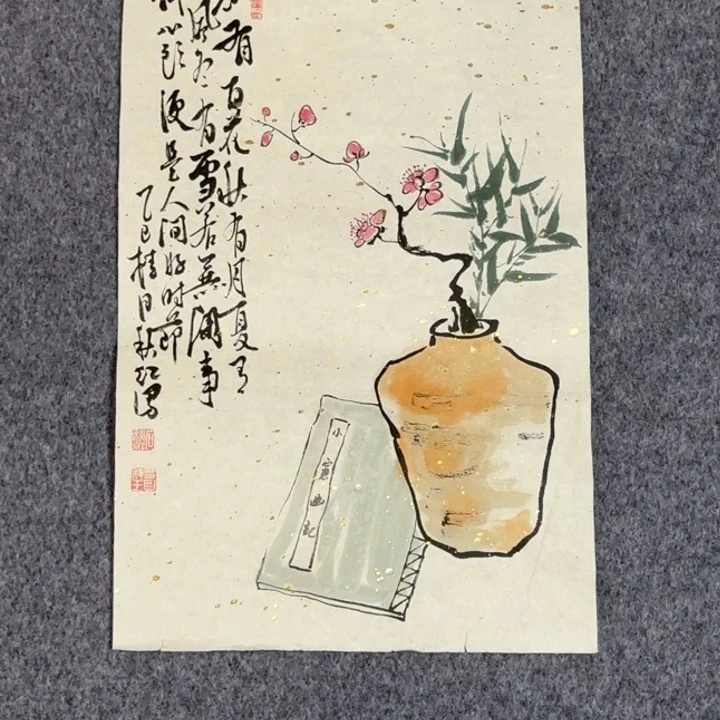 有百花秋有月夏有
风冬有雪若無闲事
心头便是人间好时节
乙巳桂月
小窗幽記